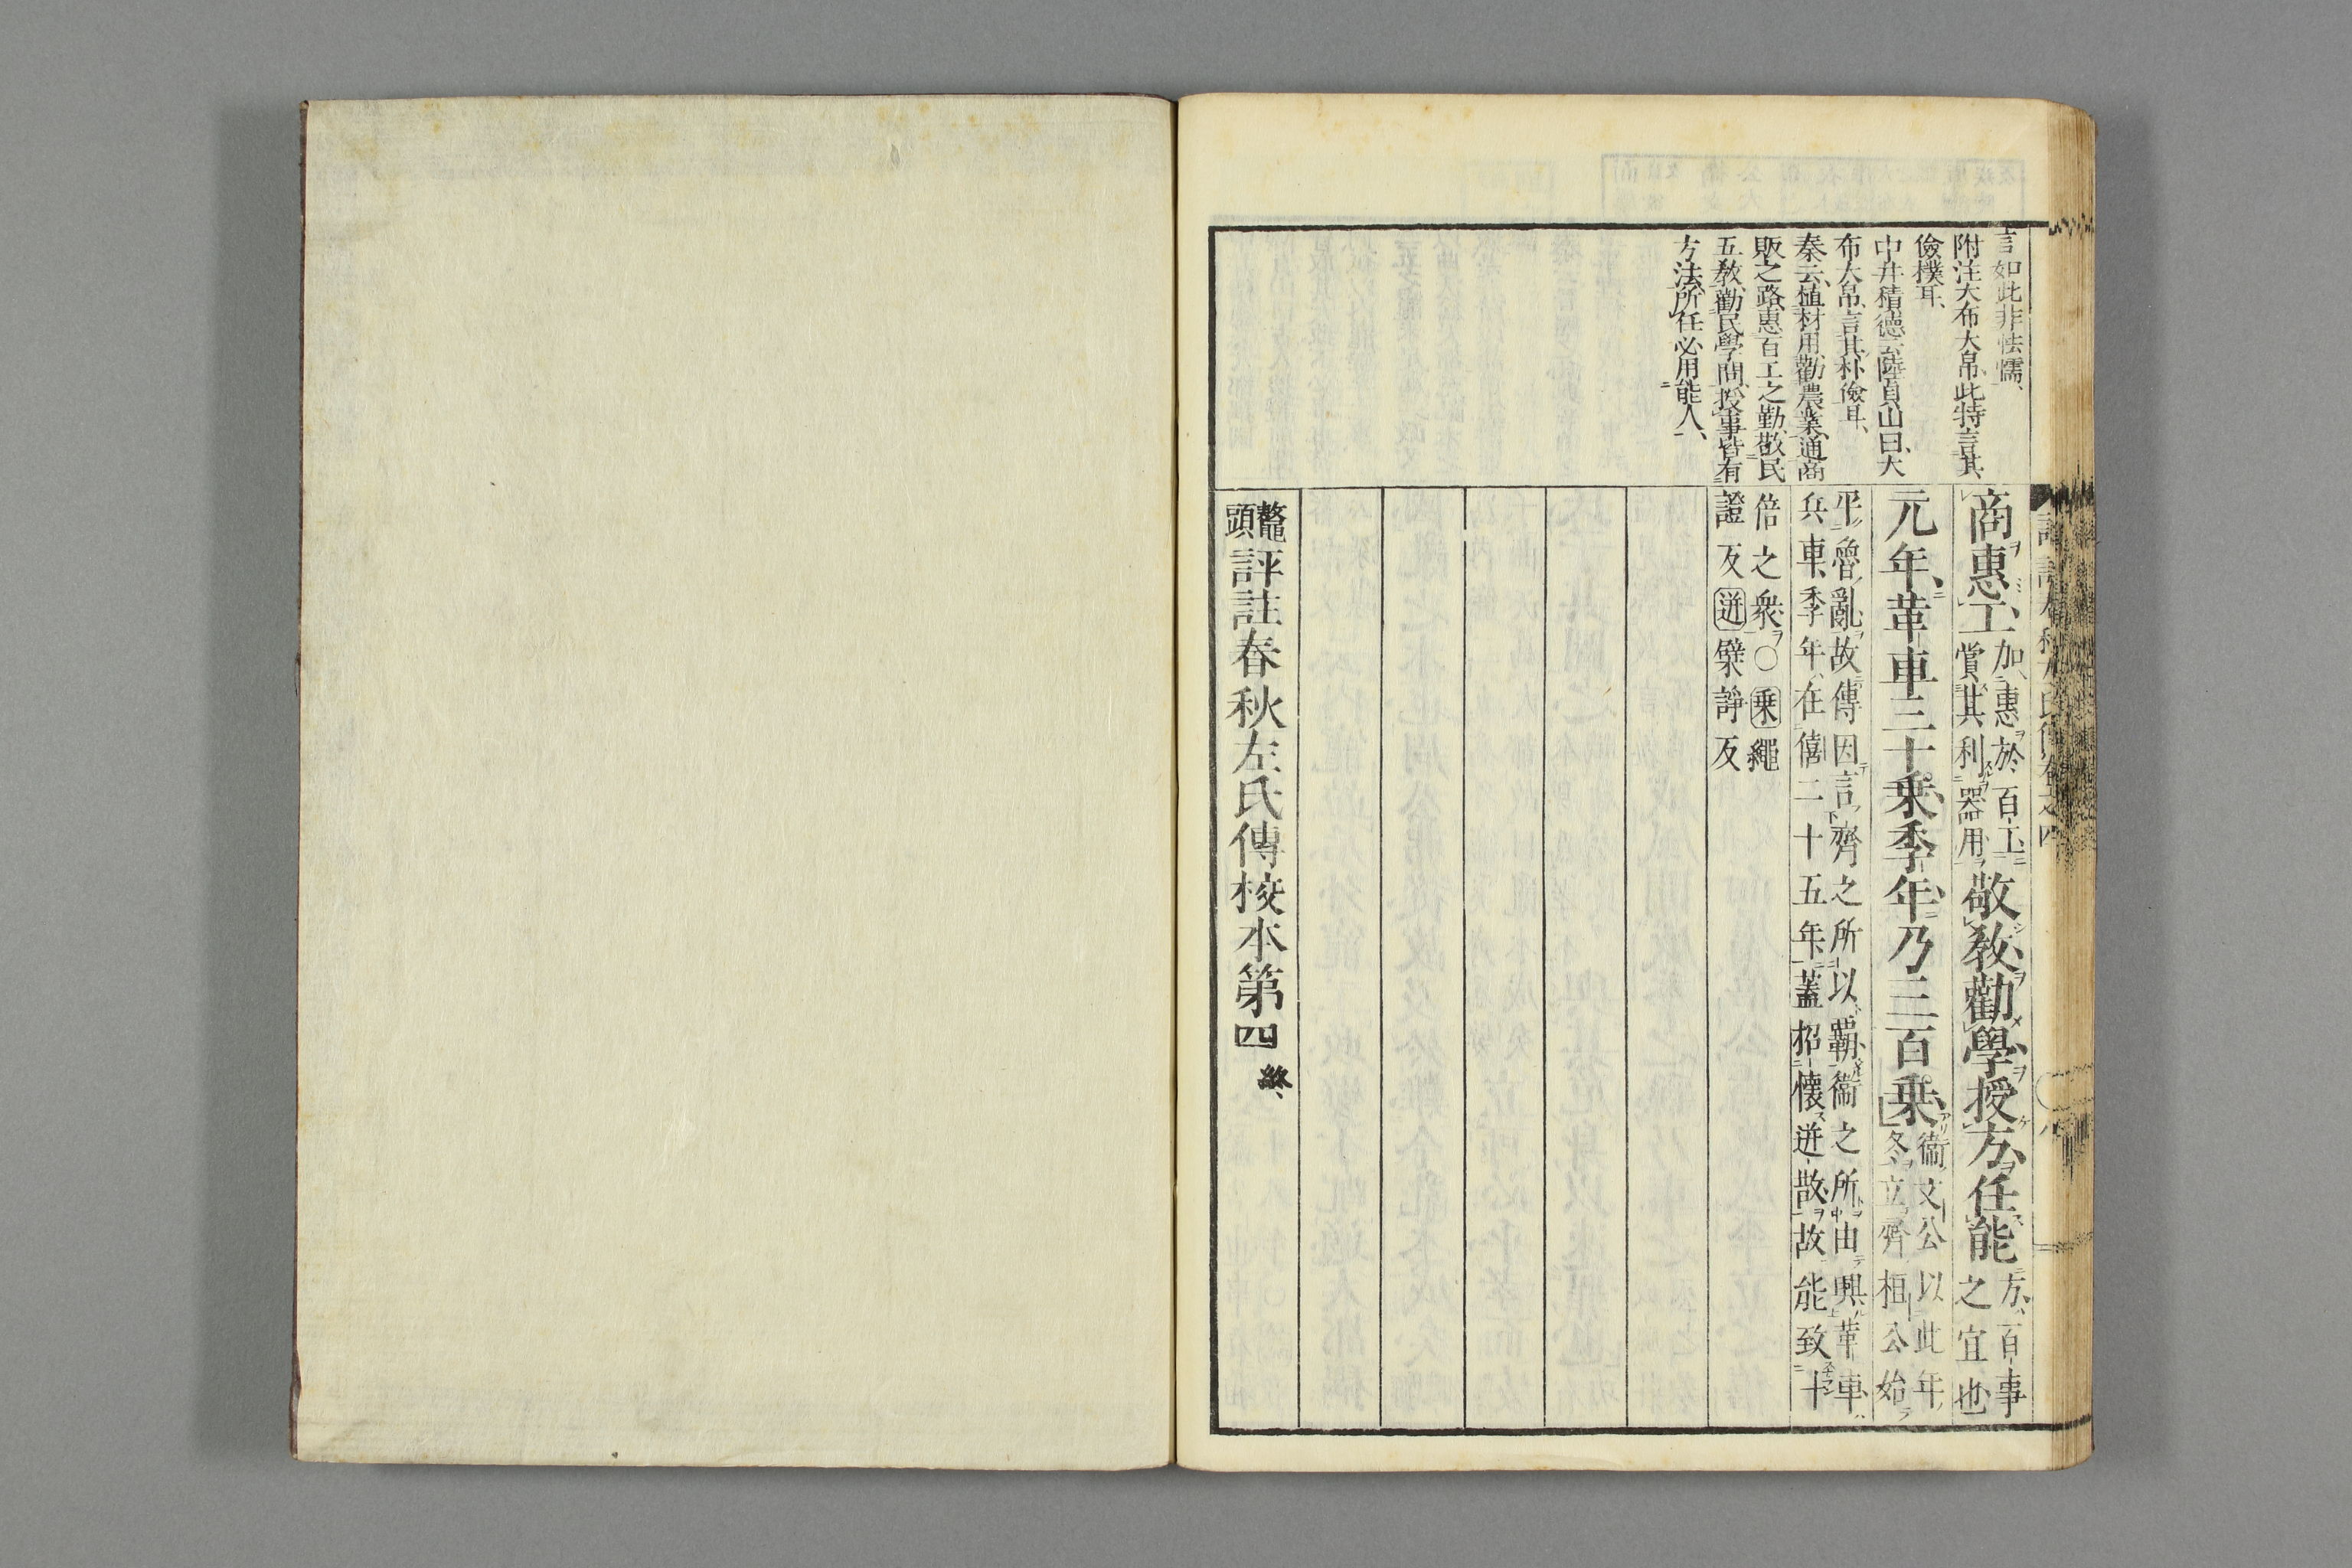 言如此非怯懦、
附注大布大帛、此特言其
儉樸耳、
中井積德云、陸貞山曰、大
布大帛、言其朴儉耳、
秦云、植材用、勸農業、通商
販之路、惠百工之勤、敬民
五教、勸民學問、授事皆有
方法、所任必用能人、
商惠工
加惠於百工
賞其利器用
敬教勸學授方任能
方百事
之宜也
元年革車三十乘季年乃三百乘
衞文公以此年
冬立齊桓公始
平魯亂故傳因言齊之所以霸衞之所由興革車
兵車季年在僖二十五年蓋招懷迸散故能致十
倍之衆○乘繩
證反迸檗諍反
鼇頭評註春秋左氏傳校本第四 終